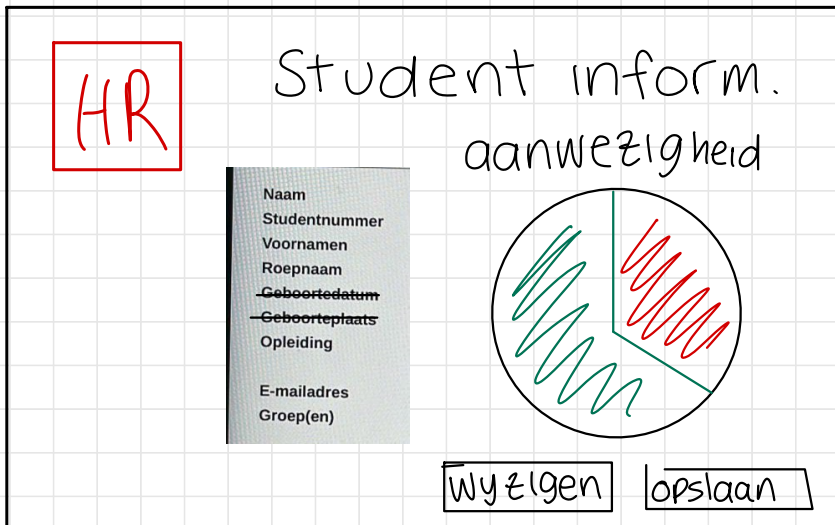 HR
Student inform.
aanwezigheid
Naam
Studentnummer
Voornamen
Roepnaam
Geboortedatum
Geboorteplaats
Opleiding
E-mailadres
Groep(en)
wyzigen
opslaan